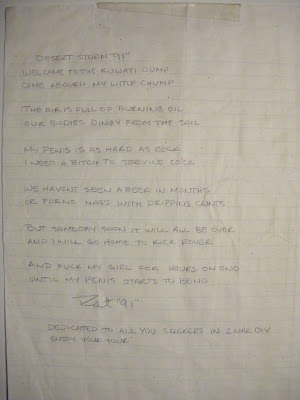 DESERT STORM "91"
WELCOME TO THE KUWAITI DUMP
COME ABOURD MY LITTLE CHUMP
THE AIR IS FULL OF BURNING OIL
OUR BODIES DINGY FROM THE SOIL
MY PENIS IS AS HARD AS ROCK
I NEED A BITCH TO SERVICE COCK
WE HAVENT SEEN A BEER IN MONTHS
OR PORNO MAGS WITH DRIPPING CUNTS
BUT SOMEDAY SOON IT WILL ALL BE OVER
AND I WILL GO HOME TO KICK ROVER
AND FUCK MY GIRL FOR HOURS ON END
UNTIL MY PENIS STARTS TO BEND
"91"
DEDICATED TO ALL YOU SUCKERS IN 2 MAR DIV
ENJOY YOUR TOUR